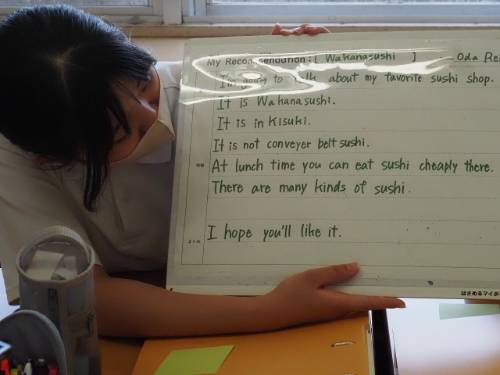 My Recommendation : [ Wakanasushi ] Oda Rei
I'm going to talk about my favorite sushi shop.
It is Wakanasushi.
It is in Kisuki.
It is not conveyer belt sushi.
At lunch time you can eat sushi cheaply there.
There are many kinds of sushi.
I hope you'll like it.